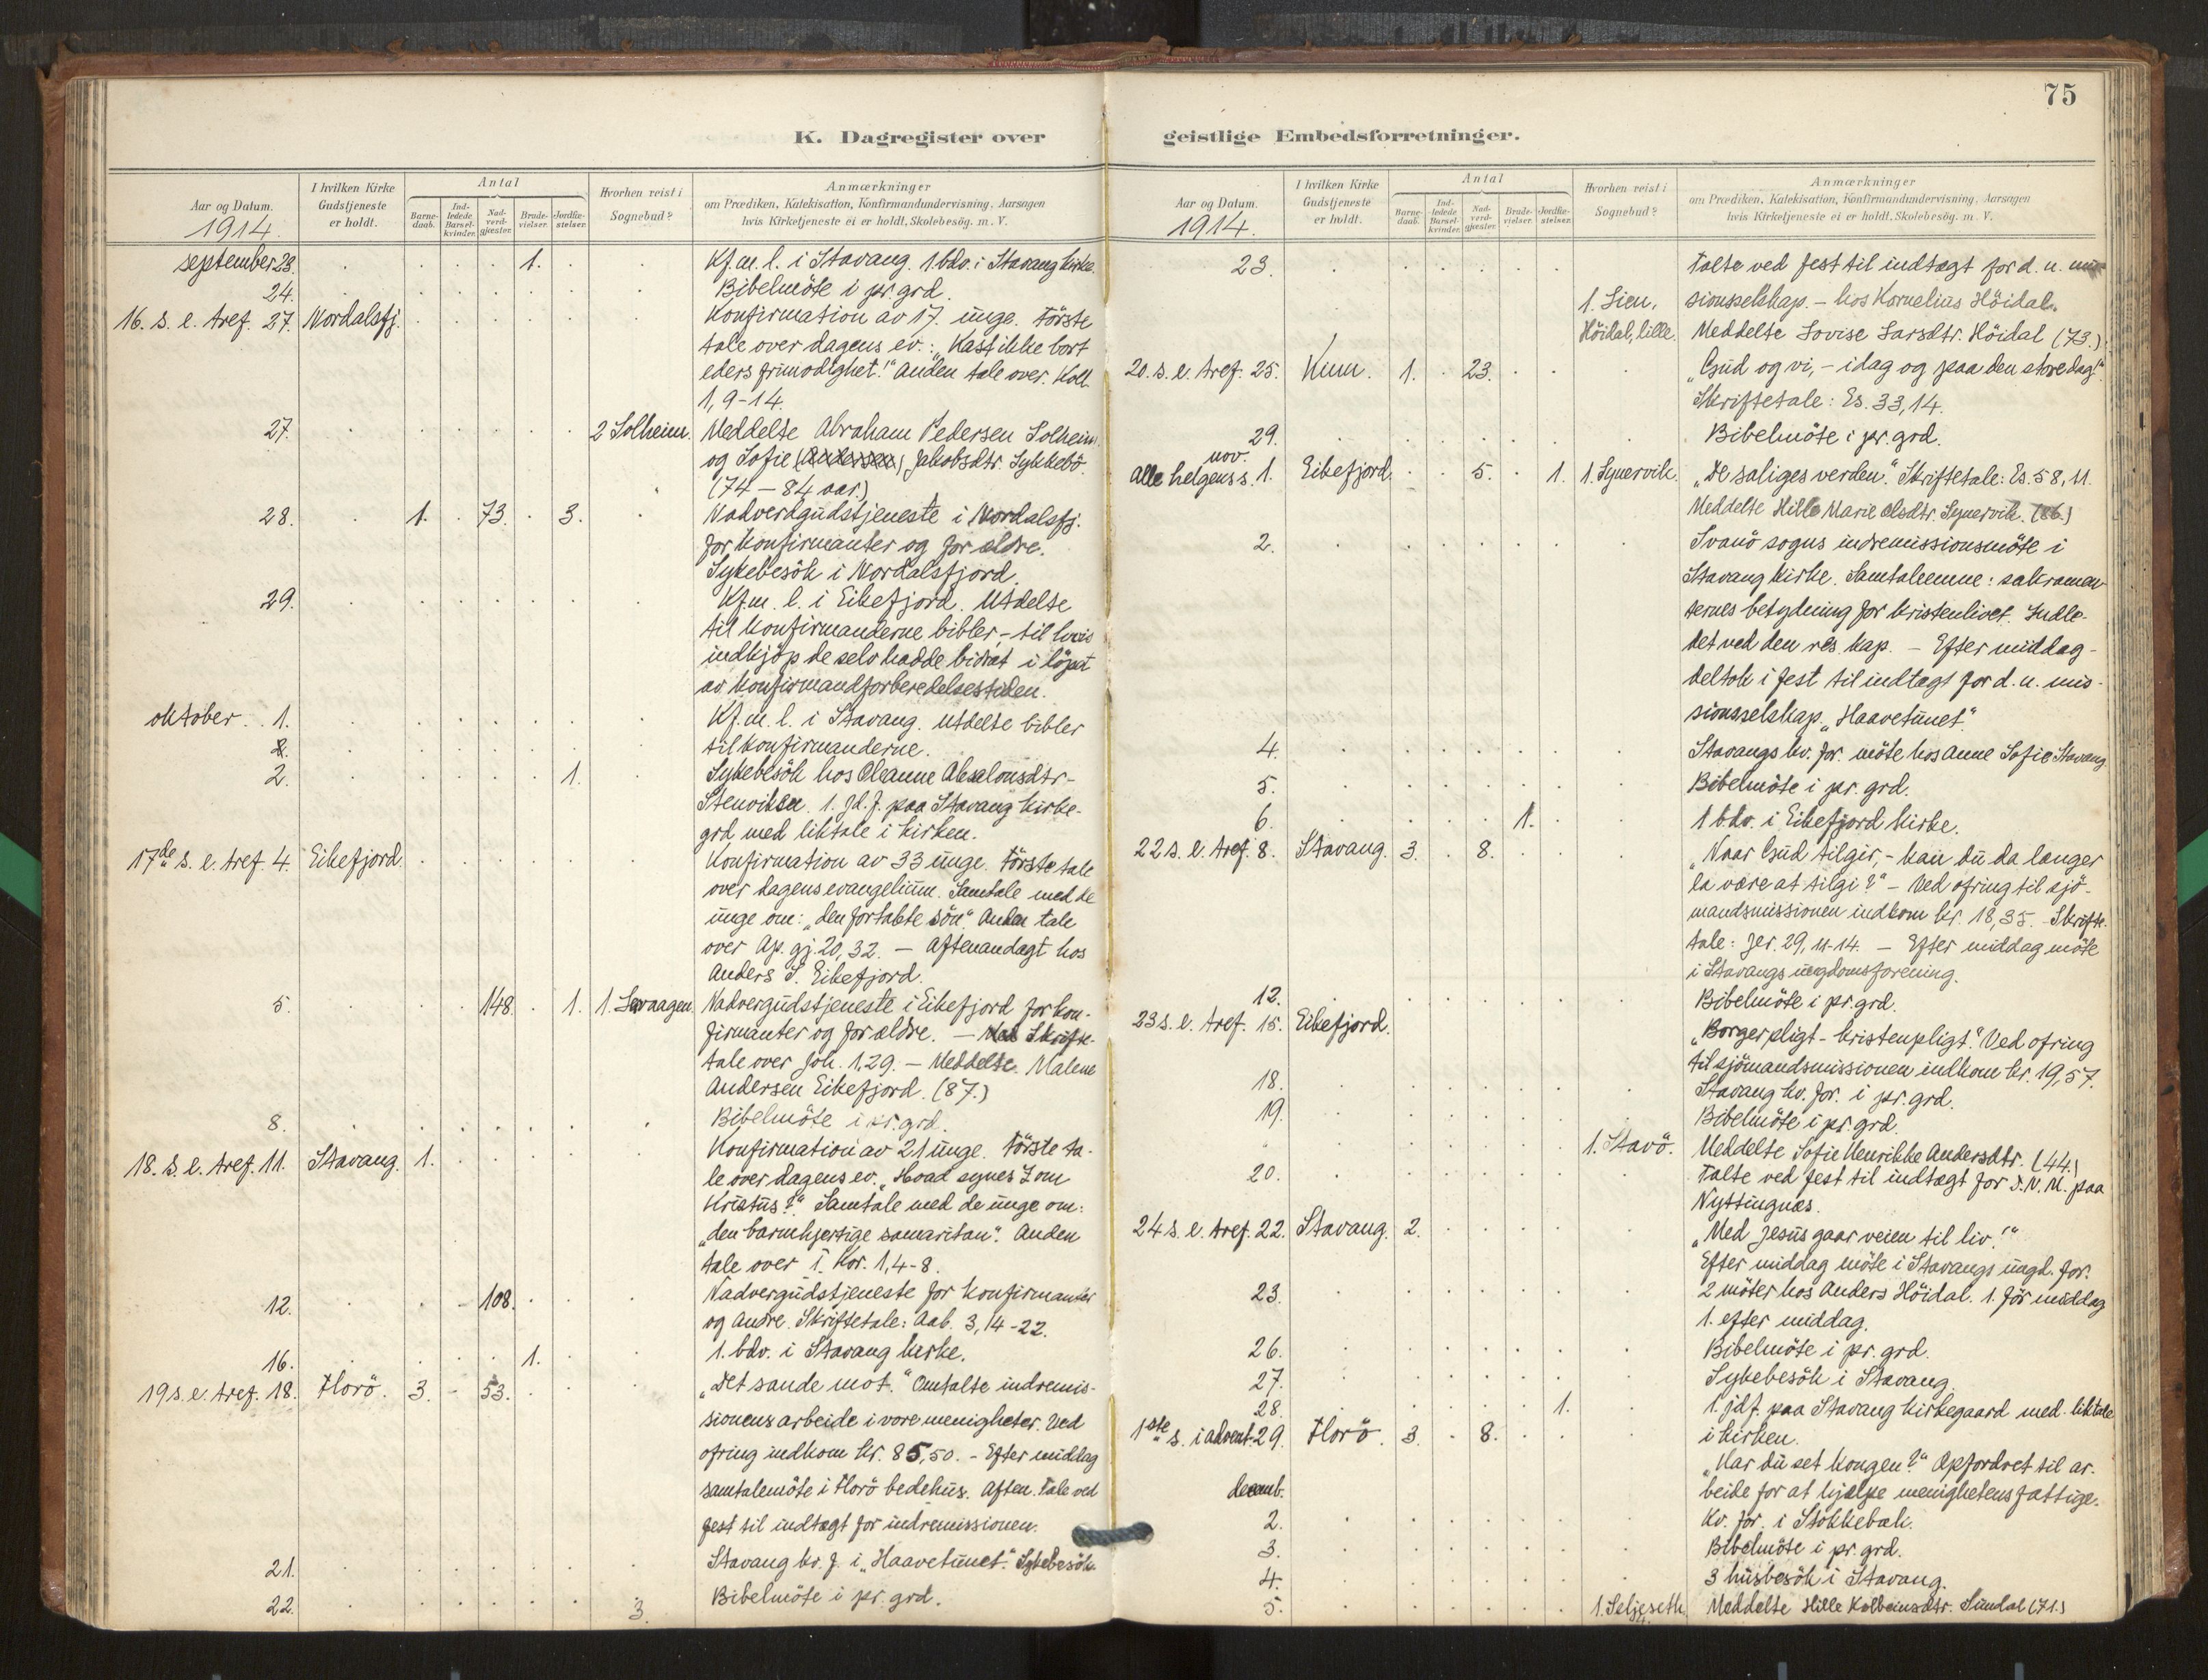 75
K. Dagregister over
Aar og Datum.
1914.
I hvilken Kirke Gudstjeneste er holdt.
Antal
Barne-daab.
Ind-ledede Barsel-kvinder.
Nad-verd-gjæster.
Brude-vielser.
Jordfæ-stelser.
Hvorhen reist i Sognebud?
Anmærkninger
om Prædiken, Katekisation, Konfirmandundervisning, Aarsagen
hvis Kirketjeneste ei er holdt, Skolebesøg. m. V.
september 23. 1. Kf.m.l. i Stavang. 1.bdv. i Stavang kirke.
24. Bibelmöte i pr.grd.
16. s. e. tref. 27. Nordalsfj. Konfirmation av 17 unge. Förste
tale over dagens ev.: "Kast ikke bort
eders frimodighet!" Anden tale over. Koll.
1, 9-14.
27. 2 Solheim. Meddelte Abraham Pedersen Solheim
og Sofie Jakobsdtr. Sykkebö.
(74 – 84 aar.)
28. 1. 73. 3. Nadverdgudstjeneste i Nordalsfj.
for konfirmanter og for ældre.
Sykebesök i Nordalsfjord.
29. Kf.m. l. i Eikefjord. Utdelte
til konfirmanderne bibler, – til hvis
indkjöp de selv hadde bidrat i löpet
av konfirmandforberedelsestiden.
oktober. 1. Kf.m. l. i Stavang. Utdelte bibler
til konfirmanderne.
2. 1. Sykebesök hos Oleanne Absalonsdtr-
Stenviken. 1. jd.f. paa Stavang kirke-
grd med liktale i kirken.
17de s. e. tref. 4. Eikefjord. Konfirmation av 33 unge. Förste tale
over dagens evangelium. Samtale med de
unge om: "den fortabte sön". Anden tale
over Ap. gj. 20, 32. – Aftenandagt hos
Anders S. Eikefjord.
5. 148. 1. 1. Nadvergudstjeneste i Eikefjord for kon-
firmanter og for ældre. – Skrifte-
tale over Joh. 1,29. – Meddelte. Malene
Andersen Eikefjord. (87.)
8. Bibelmöte i pr.grd.
18. s. e. tref. 11. Stavang. 1. Konfirmation av 21 unge. Förste ta-
le over dagens ev. "Hvad synes I om
Kristus?" Samtale med de unge om:
"den barmhjertige samaritan". Anden
tale over I. Kor. 1, 4-8.
12. 108. Nadvergudstjeneste for konfirmanter
og andre. Skriftetale: Aab. 3, 14-22.
16. 1. 1. bdv. i Stavang kirke.
19 s. e. tref. 18. Florö. 3. 53. "Det sande mot." Omtalte indremis-
sionens arbeide i vore menigheter. Ved
ofring indkom kr. 85,50. – Efter middag
samtalemöte i Florö bedehus. Aften. Tale ved
fest til indtægt for indremissionen.
21. Stavang kv. f. i "Haavetunet". Sykebesök.
22. 3. Bibelmöte i pr. grd.
geistlige Embedsforretninger.
Aar og Datum.
1914.
I hvilken Kirke Gudstjeneste er holdt.
Antal
Barne-daab.
Ind-ledede Barsel-kvinder.
Nad-verd-gjæster.
Brude-vielser.
Jordfæ-stelser.
Hvorhen reist i Sognebud?
Anmærkninger
om Prædiken, Katekisation, Konfirmandundervisning, Aarsagen
hvis Kirketjeneste ei er holdt, Skolebesøg. m. V.
23. Talte ved fest til indtægt for d. n. mis-
1. Lien, sionsselskap. – hos Kornelius Höidal.
Höidal, lille. Meddelte Lovise Larsdtr. Höidal (73.)
20. s. e. tref. 25. Kinn. 1. 23. "Gud og vi, – idag og paa den store dag!"
Skriftetale: Es. 33,14.
29. Bibelmöte i pr. grd.
nov.
Alle helgens s. 1. Eikefjord. 5. 1. 1. Synervik. "De saliges verden." Skriftetale: Es. 58, 11.
Meddelte Hille Marie Olsdtr. Synervik. (86.)
2. Svanö sogns indremissionsmöte i
Stavang kirke. Samtaleemne: sakramen-
ternes betydning for kristenlivet. Indle-
det ved den res. kap. – Efter middag –
deltok i fest til indtægt for d. n. mis-
sionsselskap. "Haavetunet".
4. Stavangs kv. for. möte hos Anne Sofie Stavang.
5. Bibelmöte i pr. grd.
6. 1. 1 bdv. i Eikefjord kirke.
22 s. e. tref. 8. Stavang. 3. 8. "Naar Gud tilgir, – kan du da længer
la være at tilgi?" – Ved ofring til sjö-
mandsmissionen indkom kr. 18,35. – Skrifte-
tale: Jer. 29, 11-14. – Efter middag möte
i Stavangs ungdomsforening.
12. Bibelmöte i pr.grd.
23 s. e. tref. 15. Eikefjord. "Borgerpligt – kristenpligt." Ved ofring
til sjömandsmissionen indkom kr. 19,57.
18. Stavang kv. for. i pr. grd.
19. Bibelmöte i pr. grd.
" 1. Stavö. Meddelte Sofie Henrikke Andersdtr. (44.)
20. Talte ved fest til indtægt for D.N.M. paa
Nyttingnæs.
24 s. e. tref. 22. Stavang. 2. "Med Jesus gaar veien til liv!"
Efter middag möte i Stavangs ungd. for.
23. 2 möter hos Anders Höidal. 1. för middag
1. efter middag.
26. Bibelmöte i pr. grd.
27. Sykebesök i Stavang.
28. 1. 1. jdf. paa Stavang kirkegaard med liktale
i kirken.
1ste s. i advent. 29. Florö. 3. 8. "Har du set kongen?" Opfordret til ar-
beide for at hjælpe menighetens fattige.
decemb.
2. Kv. for. i Stokkebæk.
3. Bibelmöte i pr. grd.
4. 3 husbesök i Stavang.
5. 1. Seljeseth. Meddelte Hille Kolbeinsdtr. Sundal (71.)